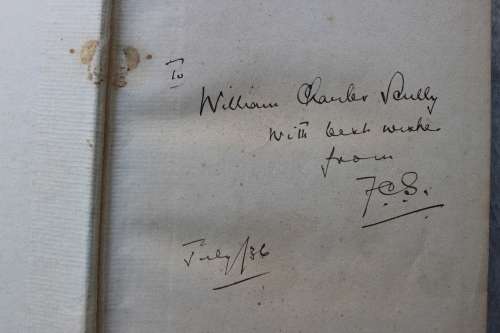 To
William Charles Scully
with best wishes
from
F.C.S.
July/36